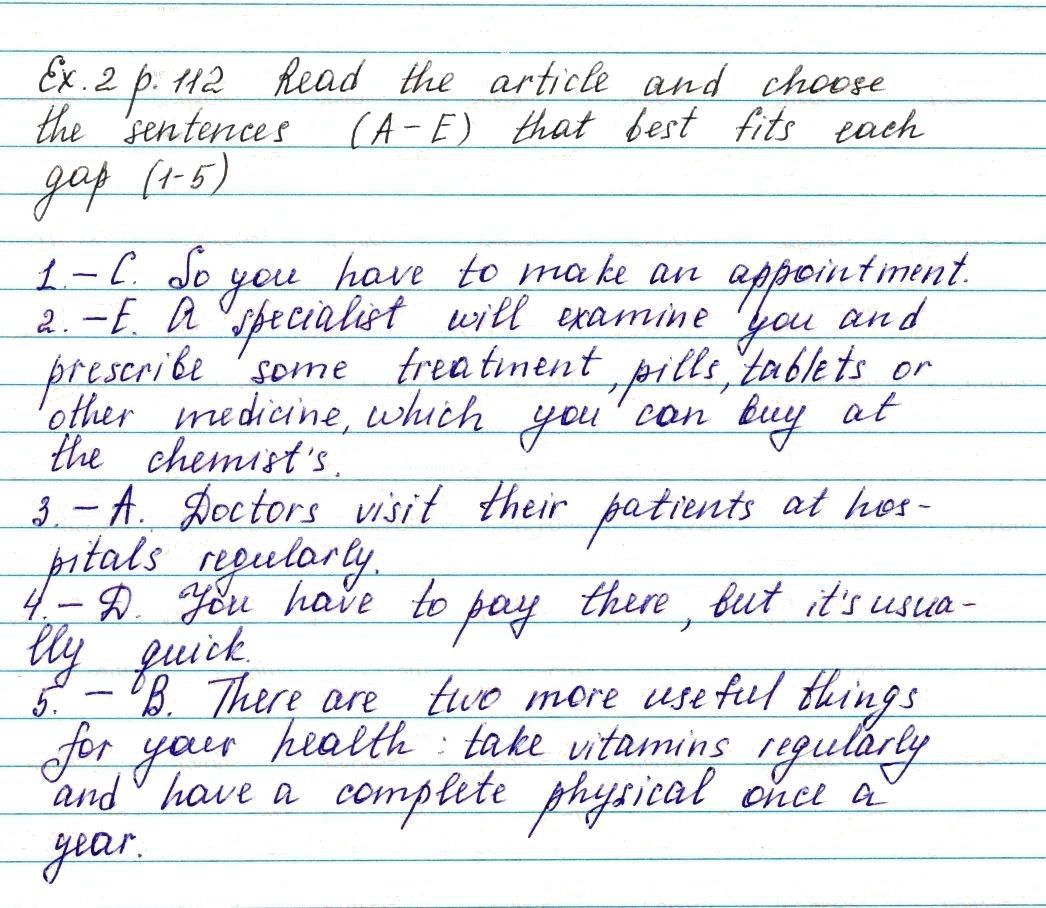 Ex. 2 p. 112 Read the article and choose
the sentences (A-E) that best fits each
gap (1-5)
1. - C. So you have to make an appointment.
2. - E. A specialist will examine you and
prescribe some treatment, pills, tablets or
other medicine, which you can buy at
the chemist's.
3. - A. Doctors visit their patients at hos-
pitals regularly.
4. - D. You have to pay there, but it's usua-
lly quick.
5. - B. There are two more useful things
for your health: take vitamins regularly
and have a complete physical once a
year.